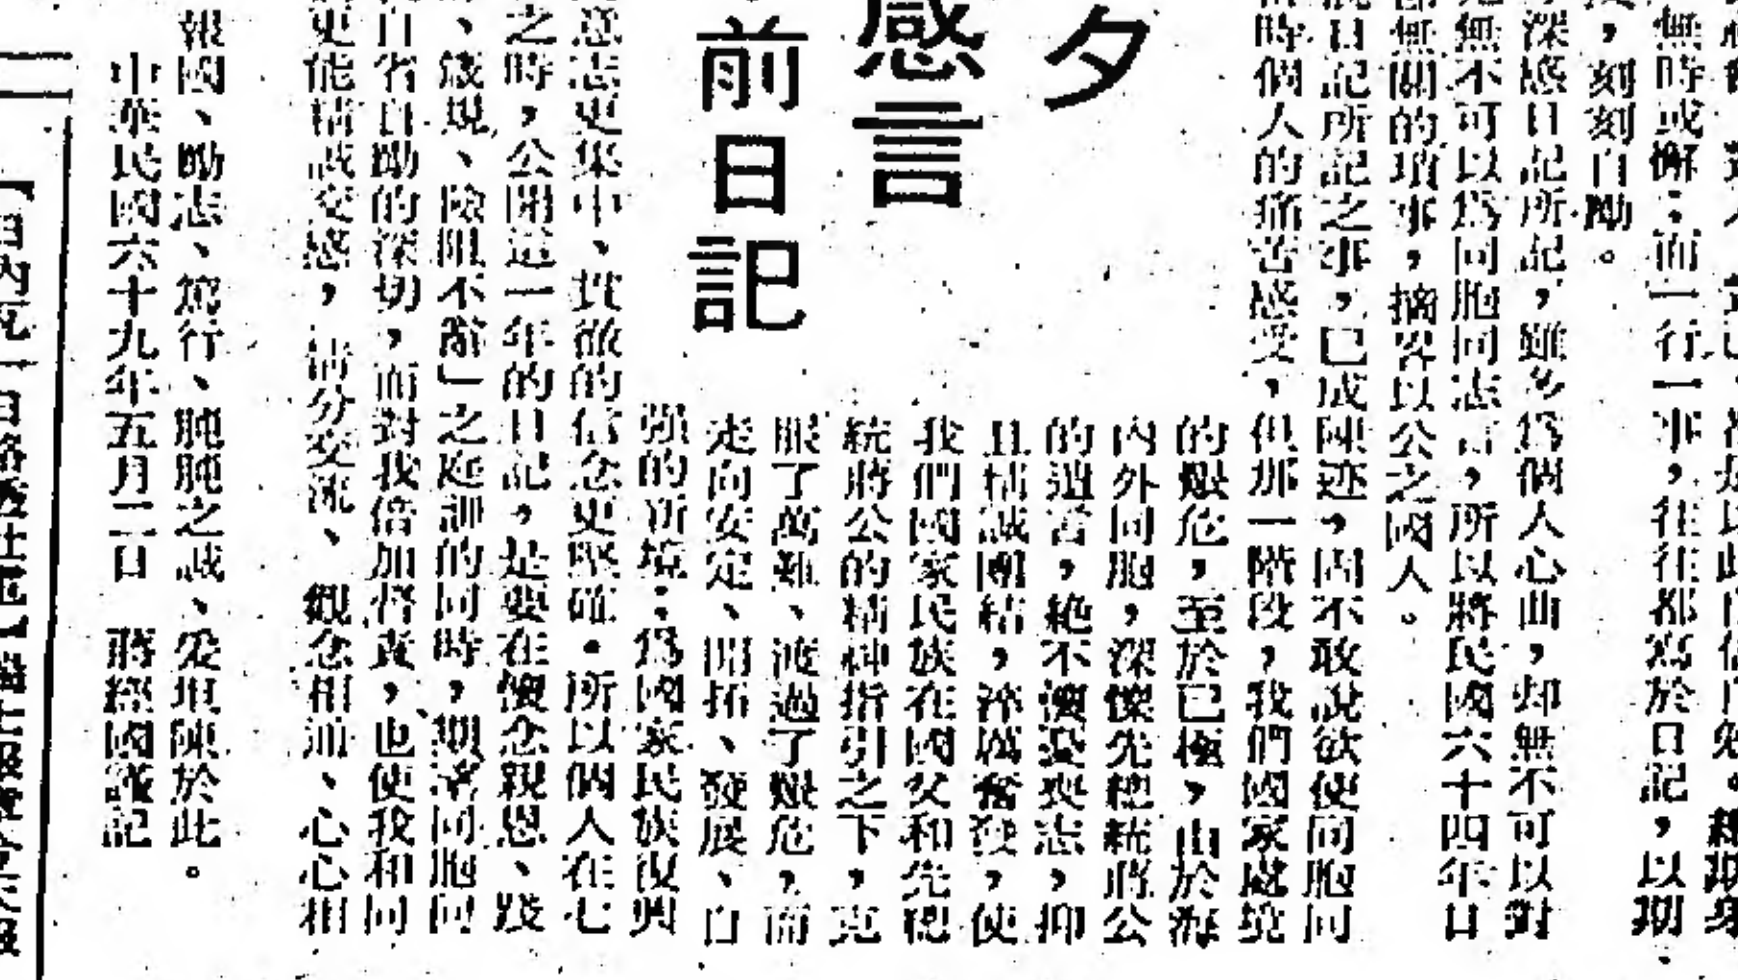 無時或懈；而一行一事，往往都寫於日記，以期
，刻刻自勵。
深感日記所記，雖多爲個人心曲，却無不可以對
無不可以爲同胞同志言，所以將民國六十四年日
無關的瑣事，摘畧以公之國人。
日記所記之事，已成陳迹，固不敢說欲使同胞同
時個人的痛苦感受，但那一階段，我們國家處境
的艱危，至於已極，由於海
內外同胞，深懍先總統蔣公
的遺言，絶不懷憂喪志，抑
且精誠團結，淬厲奮發，使
我們國家民族在國父和先總
統蔣公的精神指引之下，克
服了萬難、渡過了艱危，而
走向安定、開拓、發展、自
強的新境；爲國家民族復興
夕
感言
前日記
意志更集中、貫徹的信念更堅確。所以個人在七
之時，公開這一年的日記，是要在懷念親恩、踐
、箴規、險阻不辭」之庭訓的同時，期望同胞同
自省自勵的深切，而對我倍加督責，也使我和同
更能精誠交感，情分交流、觀念相通、心心相
報國、勵志、篤行、肫肫之誠、爰坦陳於此。
中華民國六十九年五月二日　蔣經國謹記